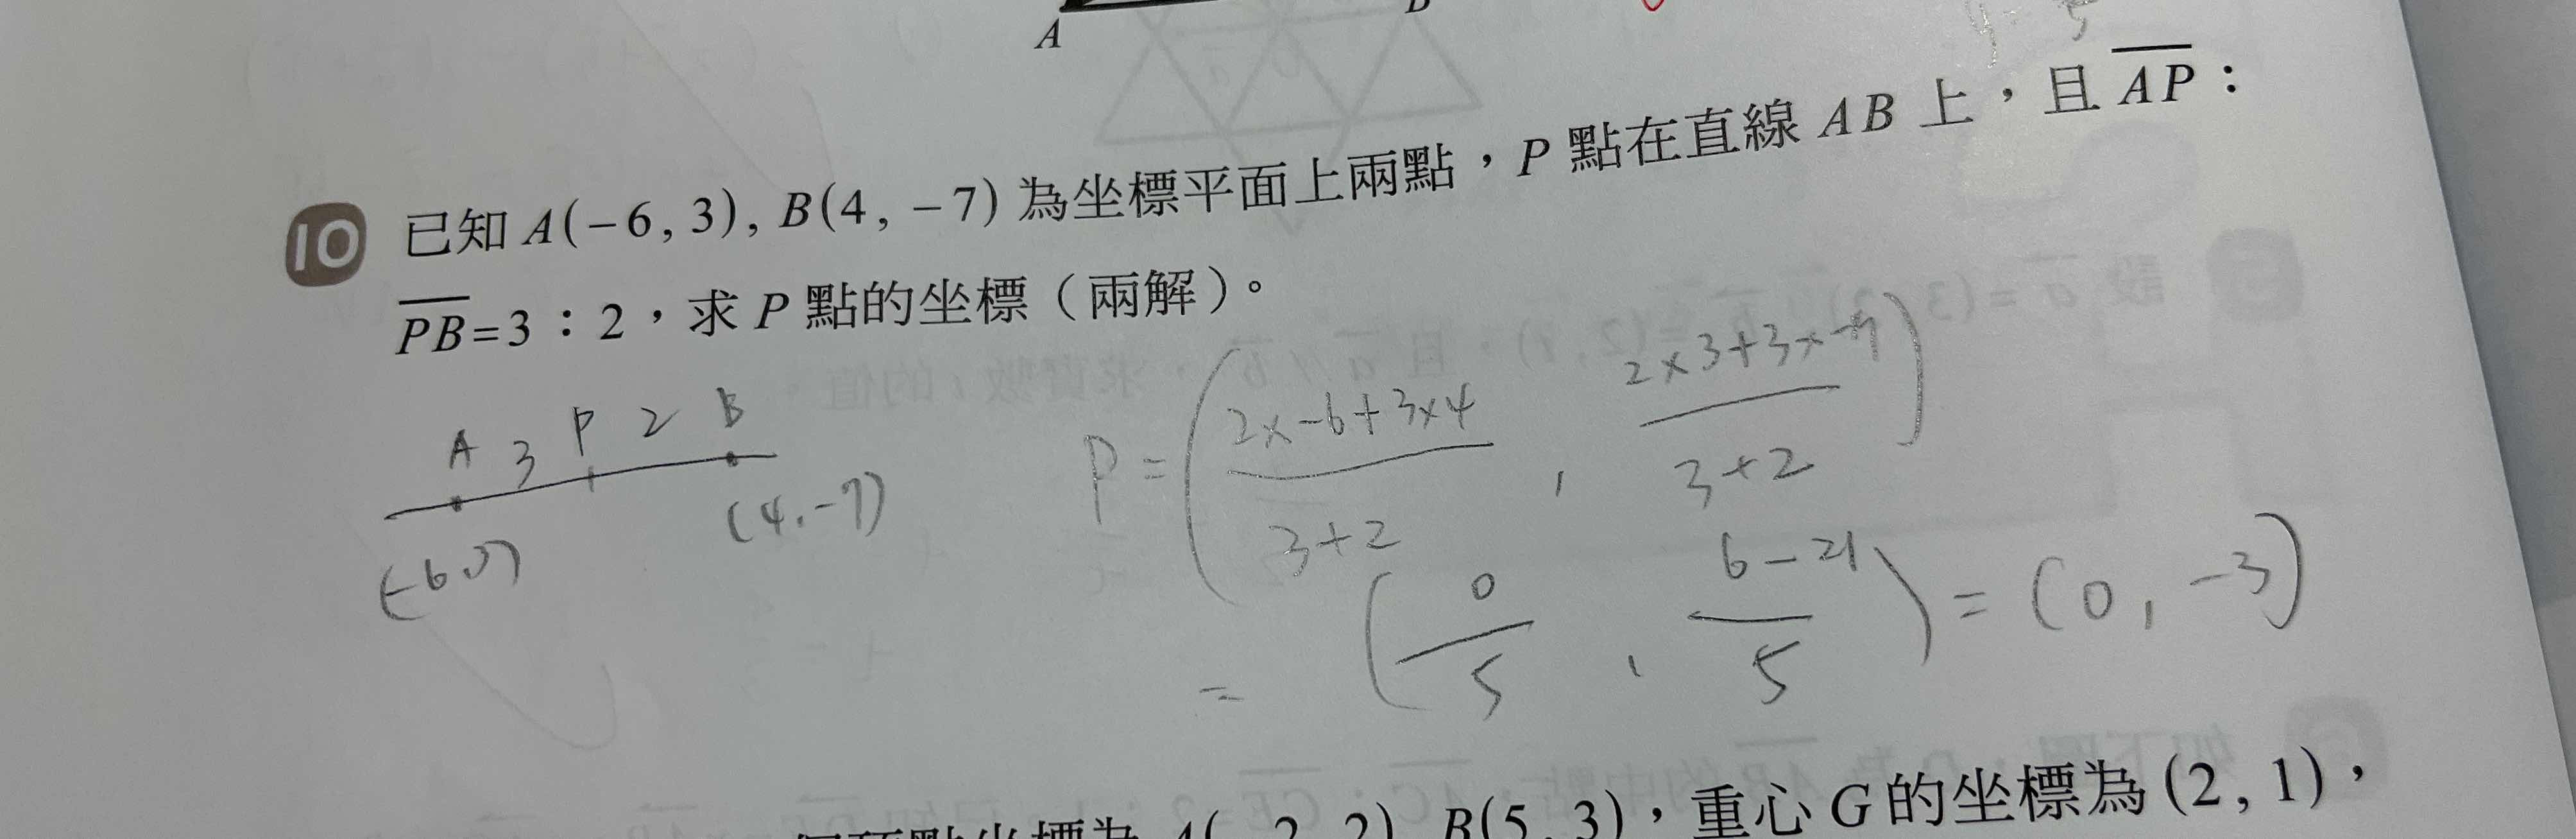 A B
10 已知 A(-6, 3), B(4, -7) 為坐標平面上兩點，P 點在直線 AB 上，且 AP：
PB=3：2，求 P 點的坐標（兩解）。
A 3 P 2 B
(-6,3) (4,-7)
P = (2×-6+3×4 / 3+2 , 2×3+3×-7 / 3+2)
= (0/5 , 6-21/5) = (0, -3)
B(5, 3)，重心 G 的坐標為 (2, 1)，